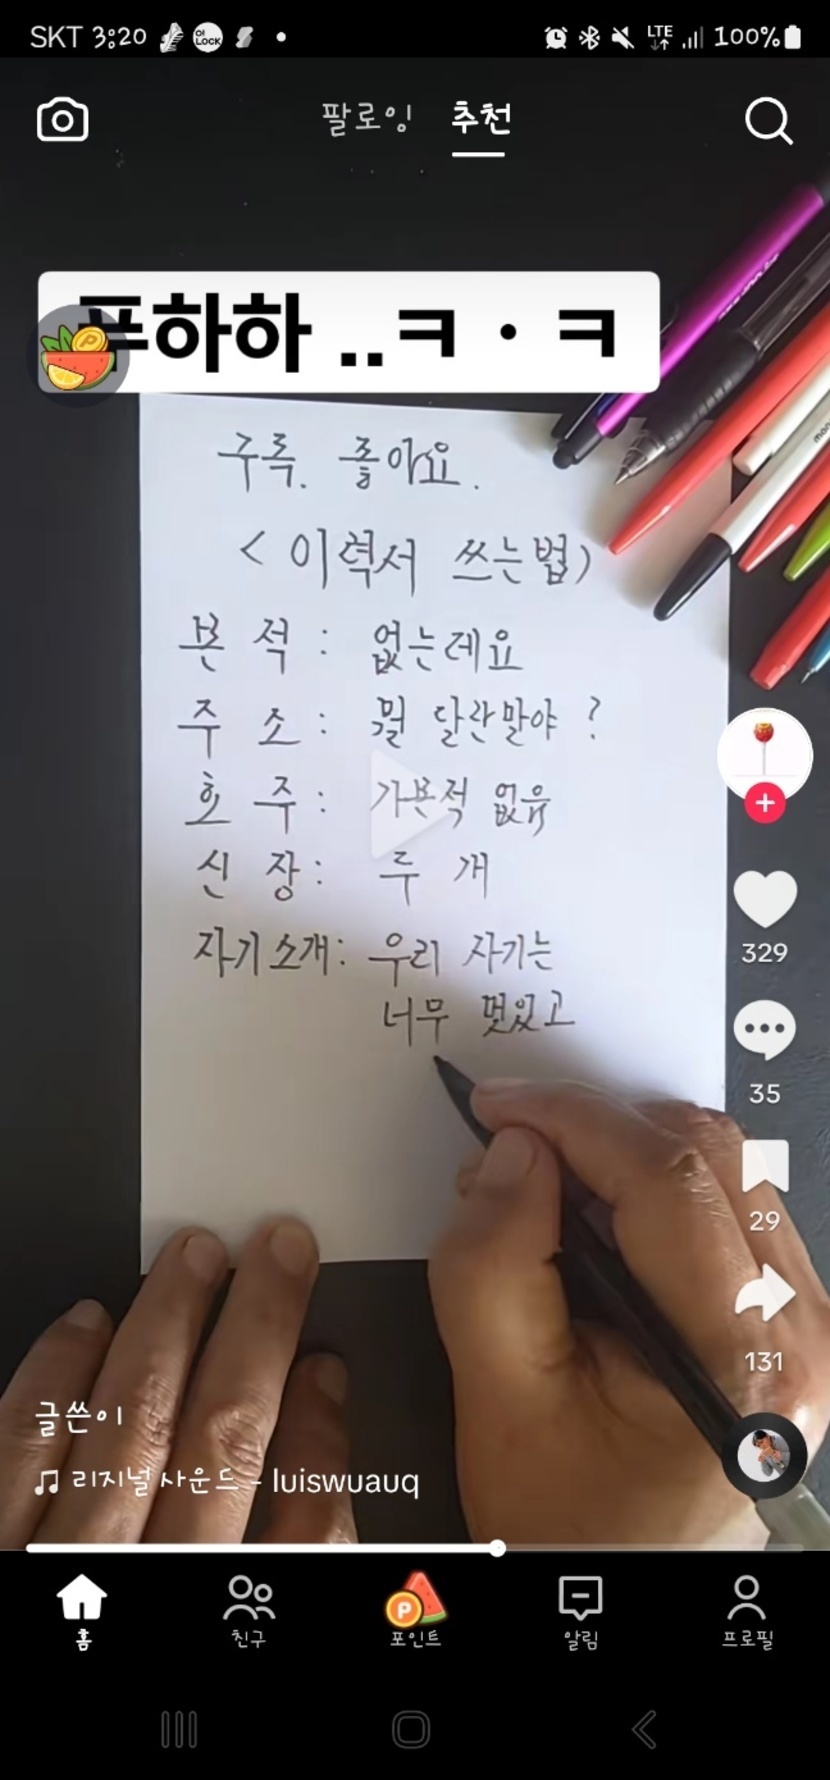 SKT 3:20
LTE 100%
팔로잉 추천
푸하하 ..ㅋ·ㅋ
구독. 좋아요.
<이력서 쓰는법>
본 적 : 없는데요
주 소 : 뭘 달란말야 ?
호 주 : 가본적 없유
신 장 : 두 개
자기소개 : 우리 자기는
너무 멋있고
329
35
29
131
글쓴이
리지널 사운드 - luiswuauq
홈 친구 포인트 알림 프로필